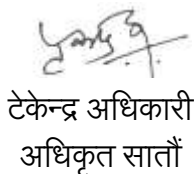 टेकेन्द्र अधिकारी
अधिकृत सातौं